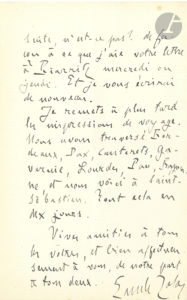 suite, n'est-ce pas? de fa-
çon à ce que j'aie votre lettre
à Biarritz mercredi ou
jeudi. Et je vous écrirai
de nouveau.
Je remets à plus tard
les impressions de voyage.
Nous avons traversé Bor-
deaux, Dax, Cauterets, Ga-
varnie, Lourdes, Pau, Bayon-
ne et nous voici à Saint-
Sébastien. Tout cela en
dix jours.
Vives amitiés à tous
les vôtres, et bien affectueu-
sement à vous, de notre part
à tous deux.
Emile Zola